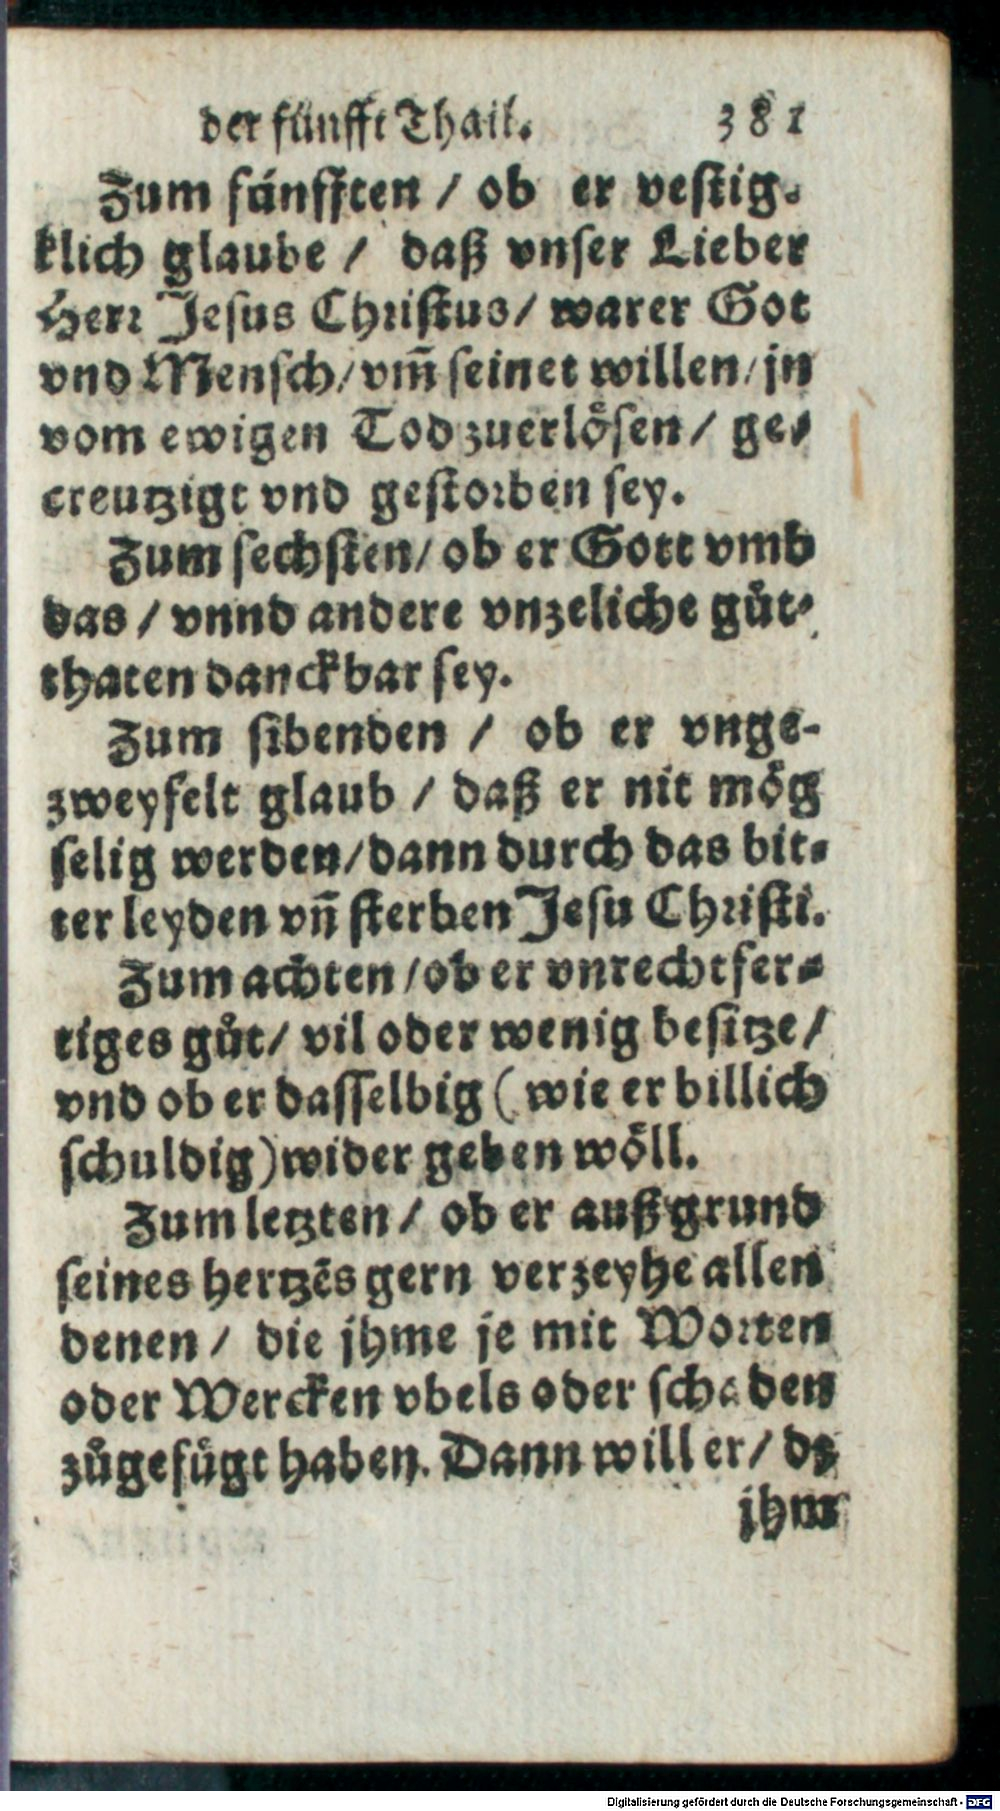 der fünfft Thail. 381
Zum fünfften / ob er vestig-
klich glaube / daß vnser Lieber
Herr Jesus Christus / warer Got
vnd Mensch / vm̃ seinet willen / jn
vom ewigen Tod zuerlösen / ge-
creutzigt vnd gestorben sey.
Zum sechsten / ob er Gott vmb
das / vnnd andere vnzeliche gůt-
thaten danckbar sey.
Zum sibenden / ob er vnge-
zweyfelt glaub / daß er nit mög
selig werden / dann durch das bit-
ter leyden vñ sterben Jesu Christi.
Zum achten / ob er vnrechtfer-
tiges gůt / vil oder wenig besitze /
vnd ob er dasselbig (wie er billich
schuldig) wider geben wöll.
Zum letzten / ob er auß grund
seines hertzẽs gern verzeyhe allen
denen / die jhme je mit Worten
oder Wercken vbels oder schaden
zůgefügt haben. Dann will er / dz
jhm
Digitalisierung gefördert durch die Deutsche Forschungsgemeinschaft - DFG